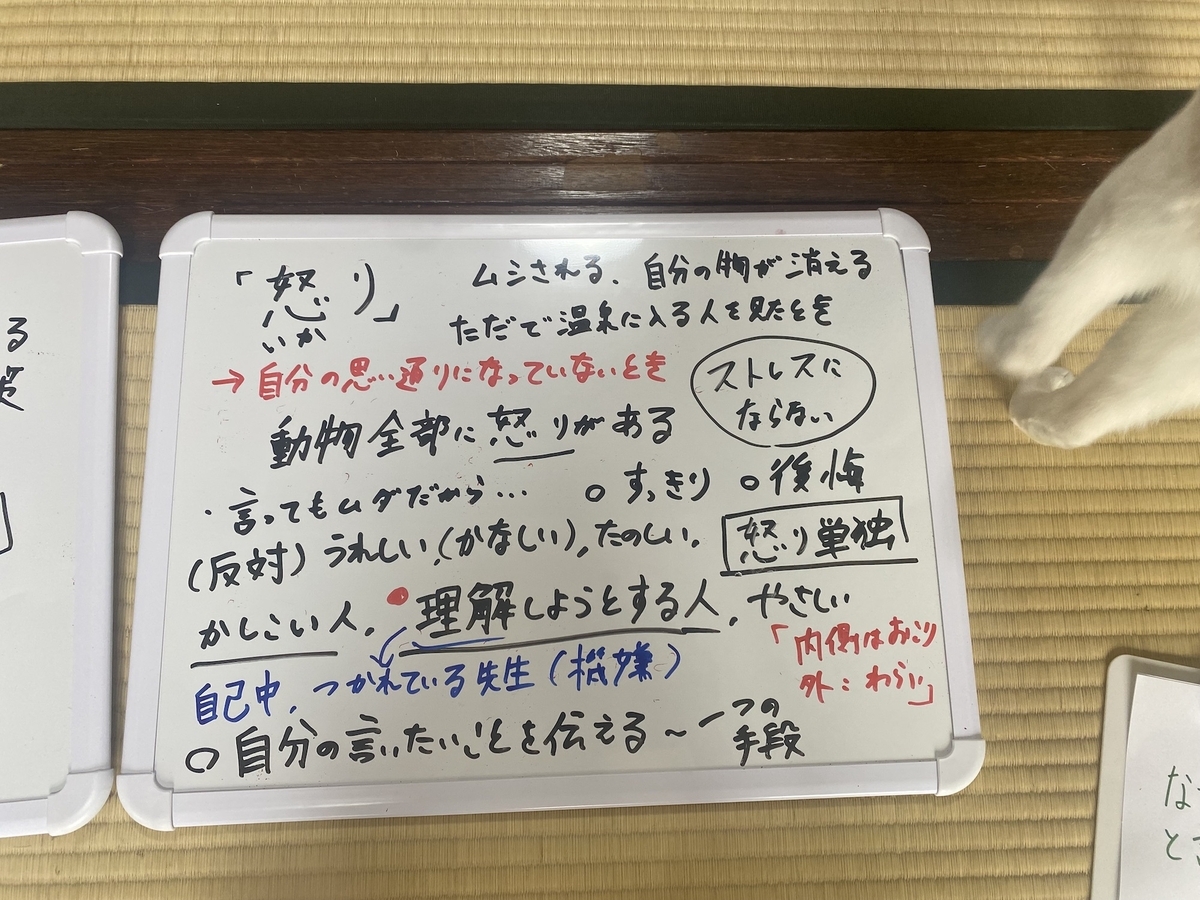 「怒り」
いか
ムシされる、自分の物が消える
ただで温泉に入る人を見たとき
→自分の思い通りになっていないとき
ストレスに
ならない
動物全部に怒りがある
・言ってもムダだから…
○すっきり ○後悔
(反対)うれしい,(かなしい),たのしい,
怒り単独
かしこい人, 理解しようとする人, やさしい
自己中, つかれている先生(機嫌)
「内側はおこり
外:わらい」
○自分の言いたいことを伝える~一つの
手段
る
な
とき